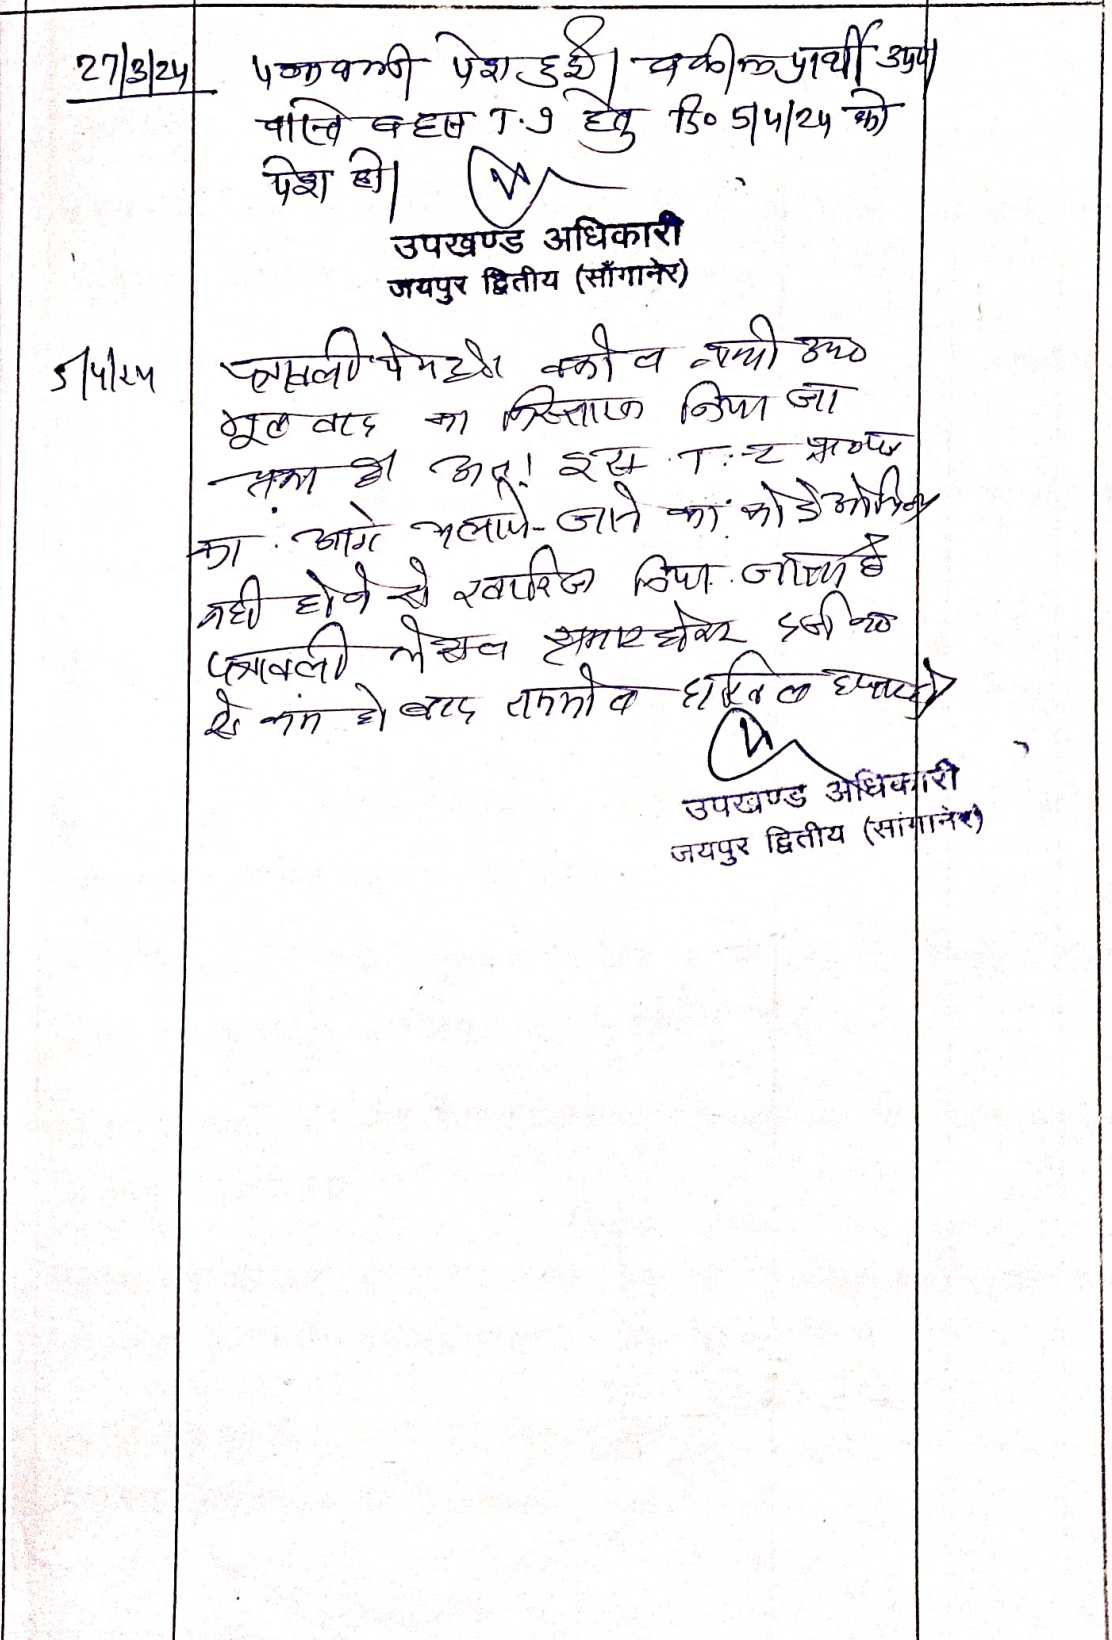 27/3/24 पत्रावली पेश हुई। वकील प्रार्थी उप०
वास्ते बहस T.I हेतु दि० 5/4/24 को
पेश हो।
उपखण्ड अधिकारी
जयपुर द्वितीय (साँगानेर)
5/4/24 पत्रावली पेश हुई। वकील प्रार्थी उप०
मूल वाद का निस्तारण किया जा
चुका है अतः इस T.I प्रा०पत्र
का आगे चलाये जाने का कोई औचित्य
नहीं होने से खारिज किया जाता है
पत्रावली फैसल शुमार होकर
से कम हो बाद दाखिल दफ्तर हो
उपखण्ड अधिकारी
जयपुर द्वितीय (सांगानेर)